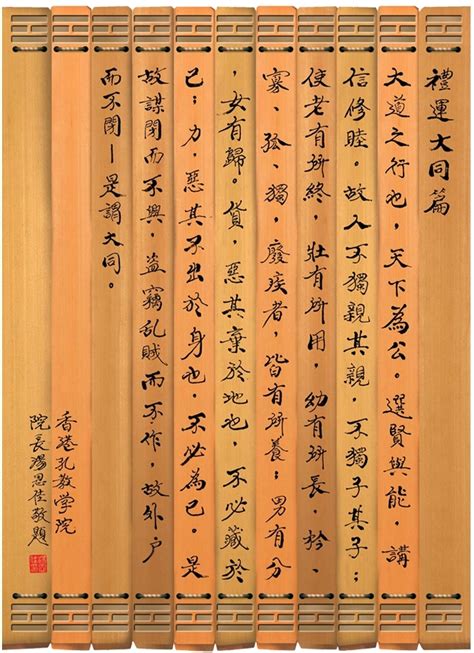 禮運大同篇
大道之行也,天下為公。選賢與能,講
信修睦。故人不獨親其親,不獨子其子;
使老有所終,壯有所用,幼有所長,矜、
寡、孤、獨,廢疾者,皆有所養;男有分
,女有歸。貨,惡其棄於地也,不必藏於
己;力,惡其不出於身也,不必為己。是
故謀閉而不興,盜竊乱賊而不作,故外戶
而不閉—是謂大同。
香港孔教学院
院長湯恩佳敬題